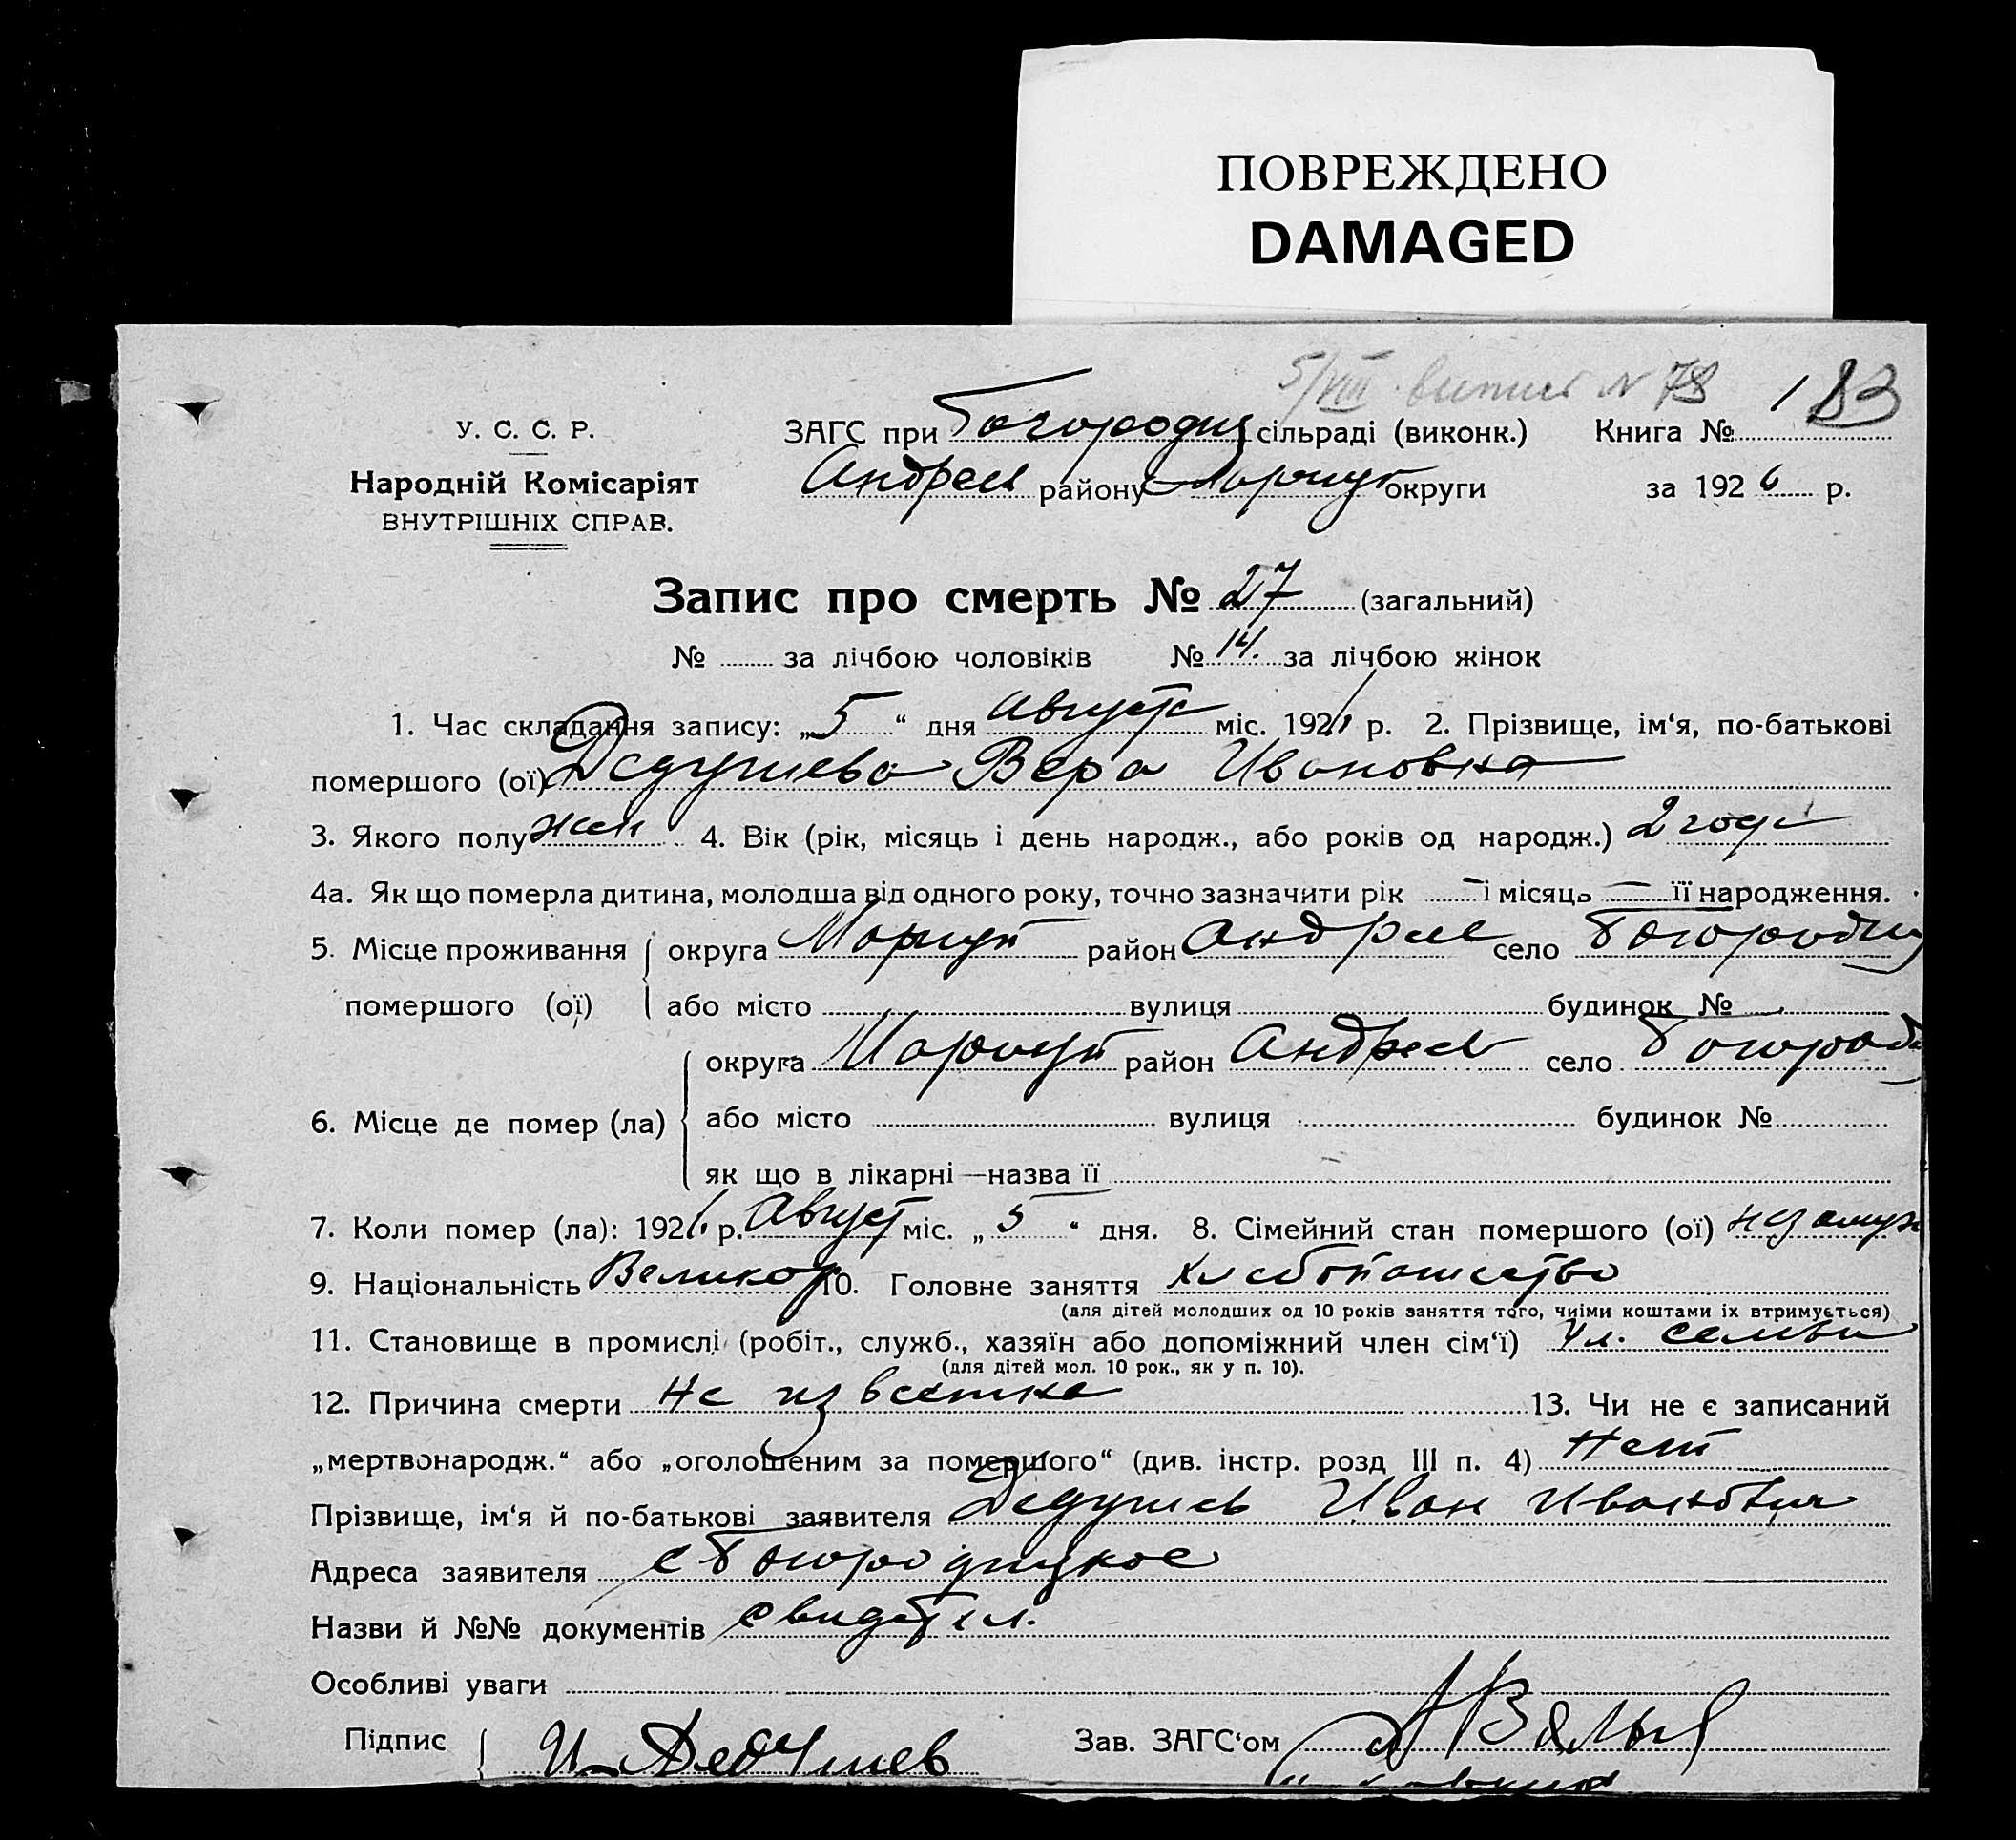 ПОВРЕЖДЕНО
DAMAGED
5/VIII випис N 78 183
У. С. С. Р. ЗАГС при Богородиц сільраді (виконк.) Книга №
Народній Комісаріят Андреев району Мариуп округи за 1926 р.
ВНУТРІШНІХ СПРАВ.
Запис про смерть № 27 (загальний)
№ за лічбою чоловіків № 14. за лічбою жінок
1. Час складання запису: „5“ дня Августа міс. 1926 р. 2. Прізвище, ім‘я, по-батькові
помершого (ої) Дедушева Вера Ивановна
3. Якого полу жен 4. Вік (рік, місяць і день народж., або років од народж.) 2 года
4а. Як що померла дитина, молодша від одного року, точно зазначити рік — і місяць — її народження.
5. Місце проживання округа Мариуп район Андрее село Богородиц
помершого (ої) або місто вулиця будинок №
округа Мариуп район Андреев село Богород
6. Місце де помер (ла) або місто вулиця будинок №
як що в лікарні—назва її
7. Коли помер (ла): 1926 р. Август міс. „5“ дня. 8. Сімейний стан помершого (ої) незамуж
9. Національність Великор 10. Головне заняття хлебопашество
(для дітей молодших од 10 років заняття того, чиїми коштами їх втримується)
11. Становище в промислі (робіт., служб., хазяїн або допоміжний член сім‘ї) чл. семьи
(для дітей мол. 10 рок., як у п. 10).
12. Причина смерти не известна 13. Чи не є записаний
„мертвонародж.“ або „оголошеним за помершого“ (див. інстр. розд III п. 4) Нет
Прізвище, ім‘я й по-батькові заявителя Дедушев Иван Иванович
Адреса заявителя с Богородицкое
Назви й №№ документів свидетел.
Особливі уваги
Підпис И Дедушев Зав. ЗАГС‘ом